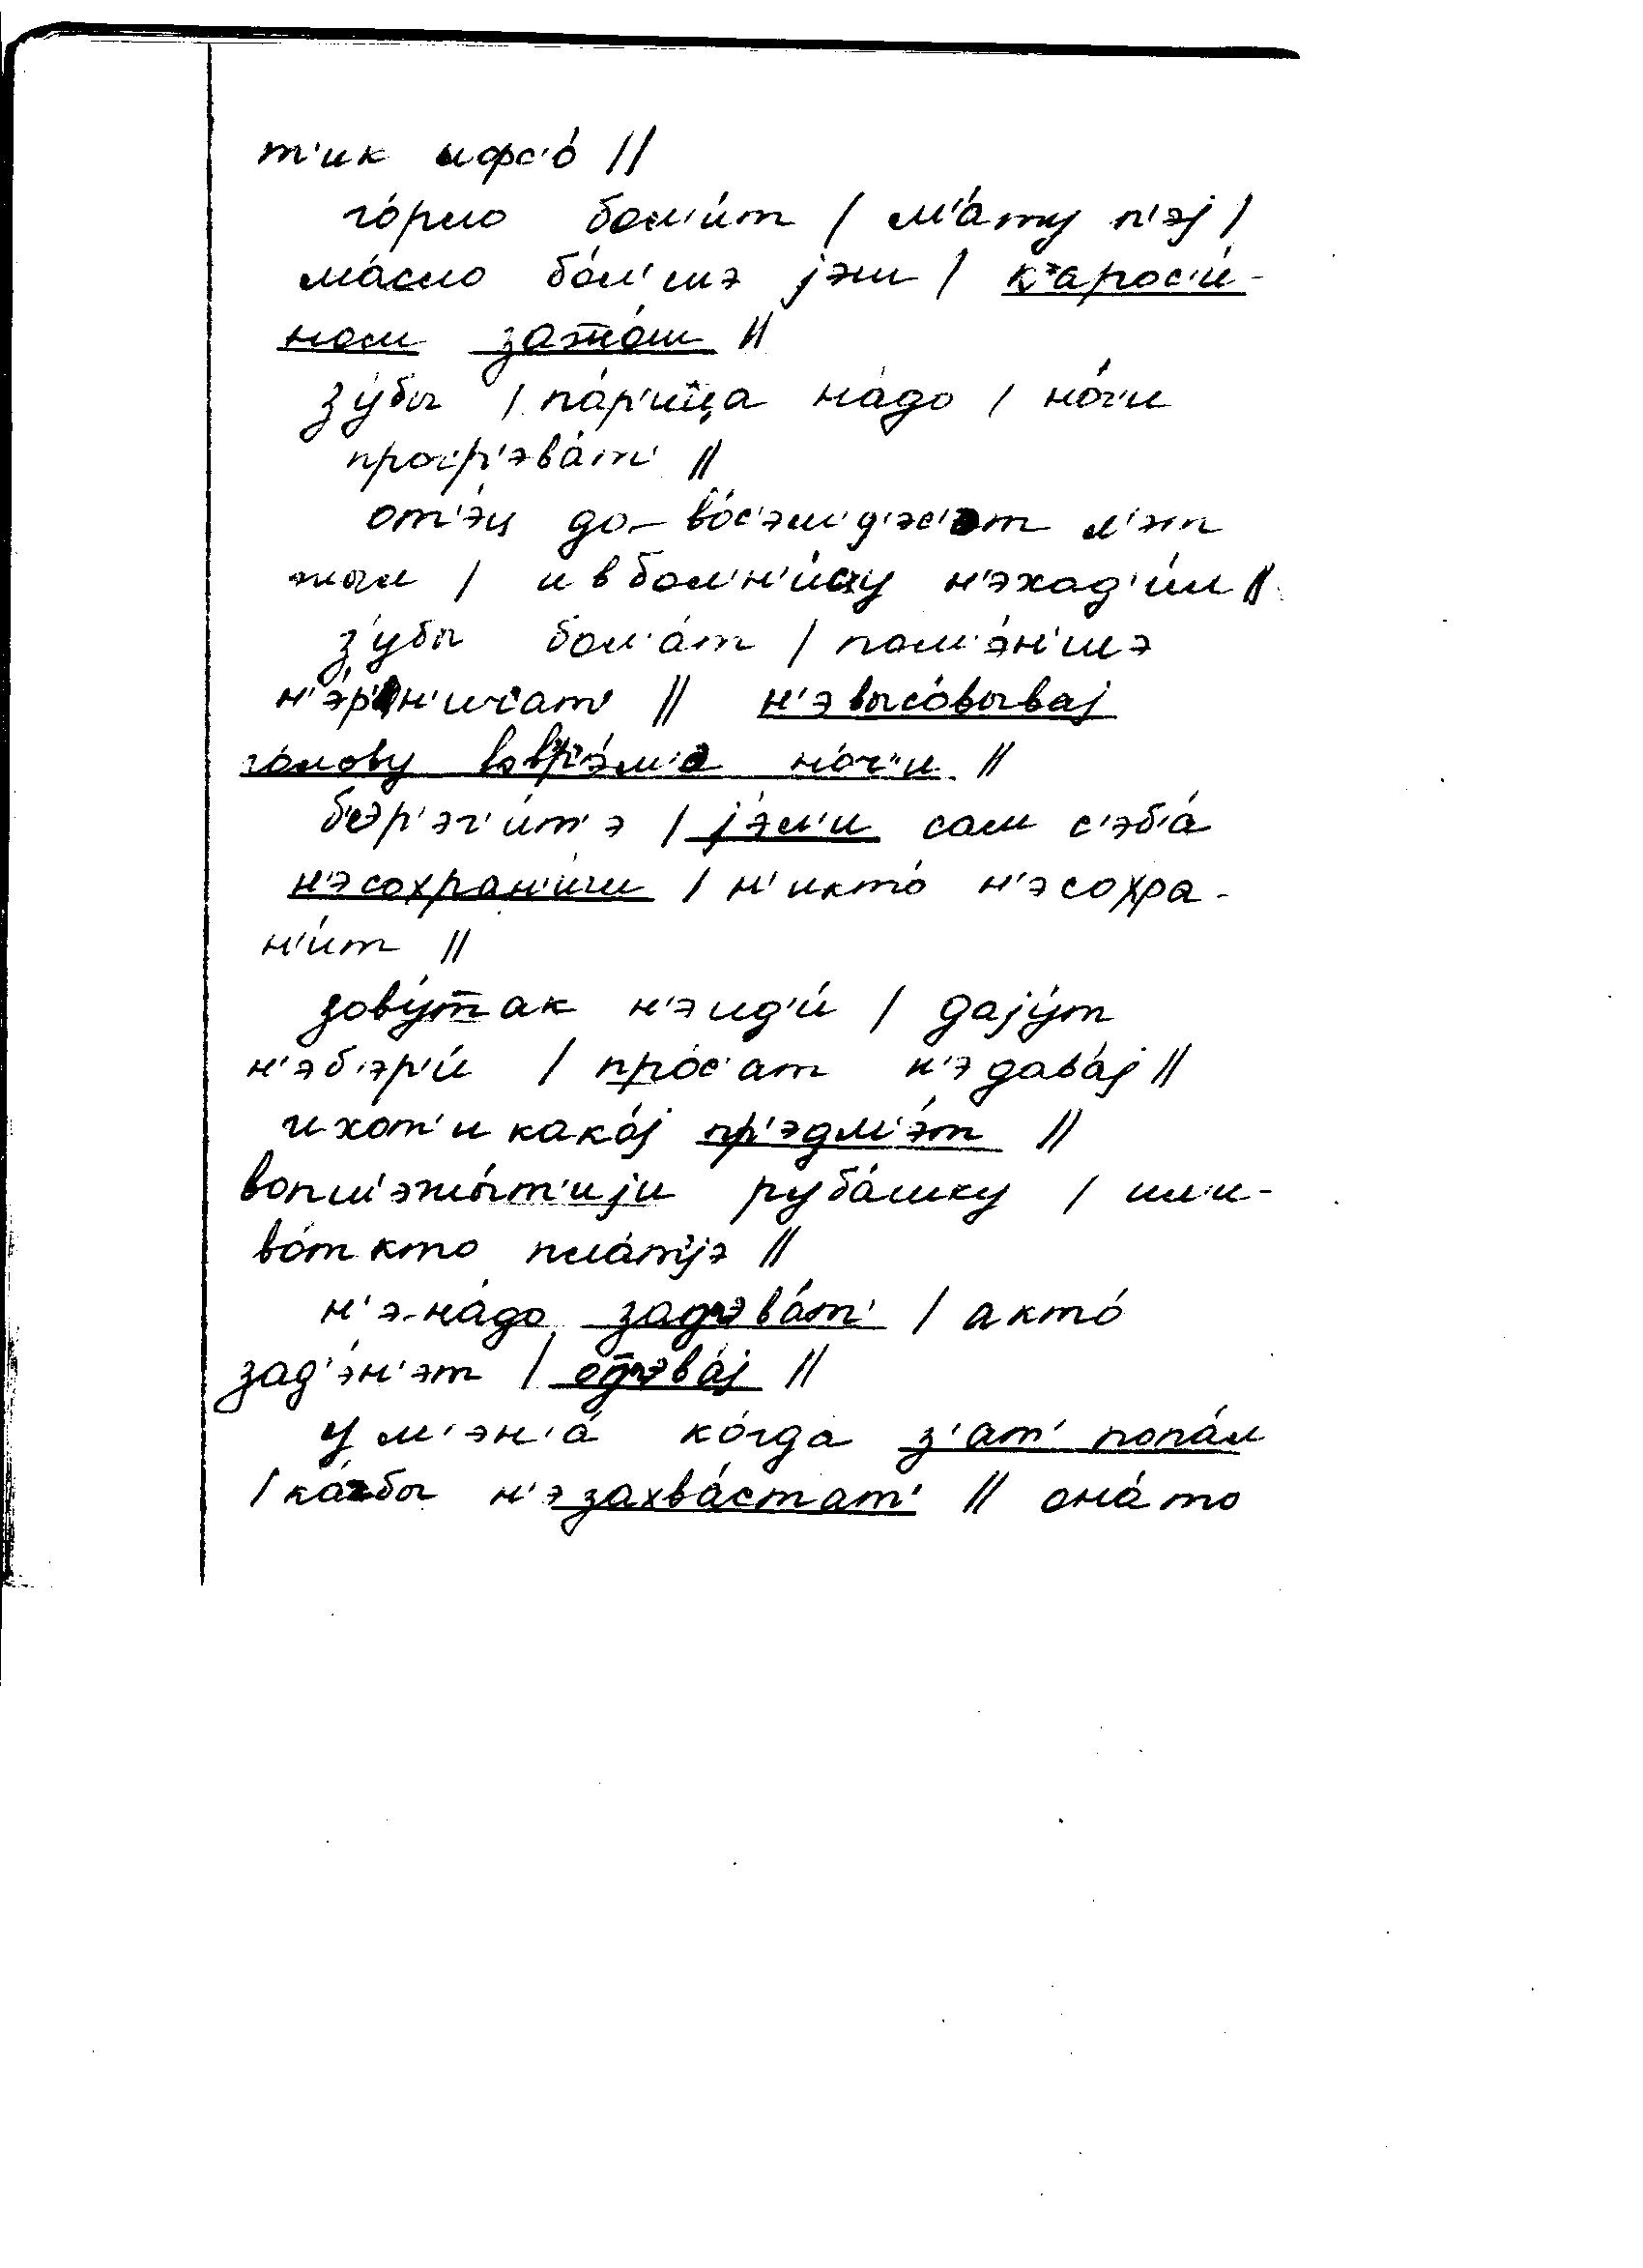 т'ик ыфс'о́ ||
го́рло бол'и́т | м'а́ту п'эј |
ма́сло бо́л'шэ јэш | к'арос'и́-
ном
зу́бы | па́р'ища на́до | но́г'и
прогр'эва́т' ||
от'э́ц до- во́с'эм'д'эс'эт л'эт
жыл | и в бол'н'и́цу н'эход'и́л ||
зу́бы бол'а́т | пом'э́н'шэ
н'э́рвн'ич'ат' || н'э высо́вываj
го́лову вовр'э́м'а но́ч'и ||
б'эр'эг'и́т'э | јэ́л'и сам с'эб'а́
н'эсохран'и́ш | н'икто́ н'эсохра-
н'и́т ||
зову́т так н'эид'и́ | дају́т
н'эб'эр'и́ | про́с'ат н'э дава́ј ||
и хот'и како́ј пр'эдм'э́т ||
вопш'эжы́т'ији руба́шку | ил'и-
во́т кто пла́т'јэ ||
н'э-на́до задэва́т' | а кто́
зад'э́н'эт |
у м'эн'а́ ко́гда з'ат' попа́л
| ка́гбы н'э захва́стат' || она́ то